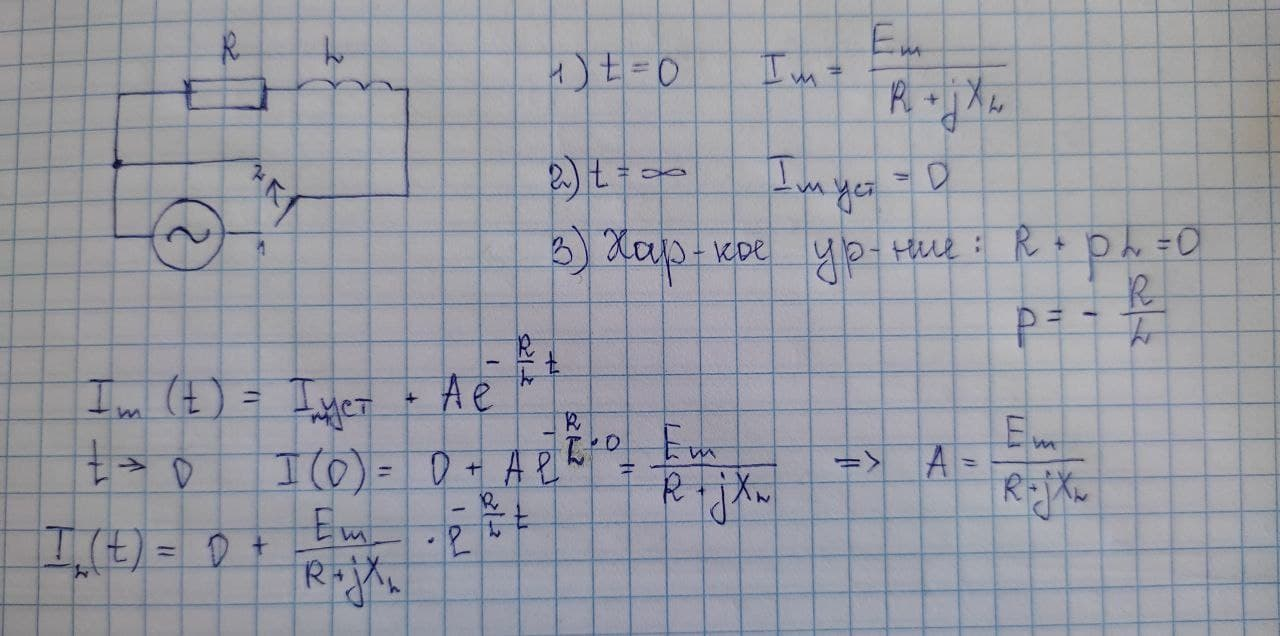 R L
2
1
1) t = 0 Im = Em / (R + jXL)
2) t = ∞ Im уст = 0
3) Хар-кое ур-ние: R + pL = 0
p = - R/L
Im (t) = Im уст + Ae^(- R/L t)
t → 0 I(0) = 0 + Ae^(- R/L · 0) = Em / (R + jXL) => A = Em / (R + jXL)
IL(t) = 0 + Em / (R + jXL) · e^(- R/L t)